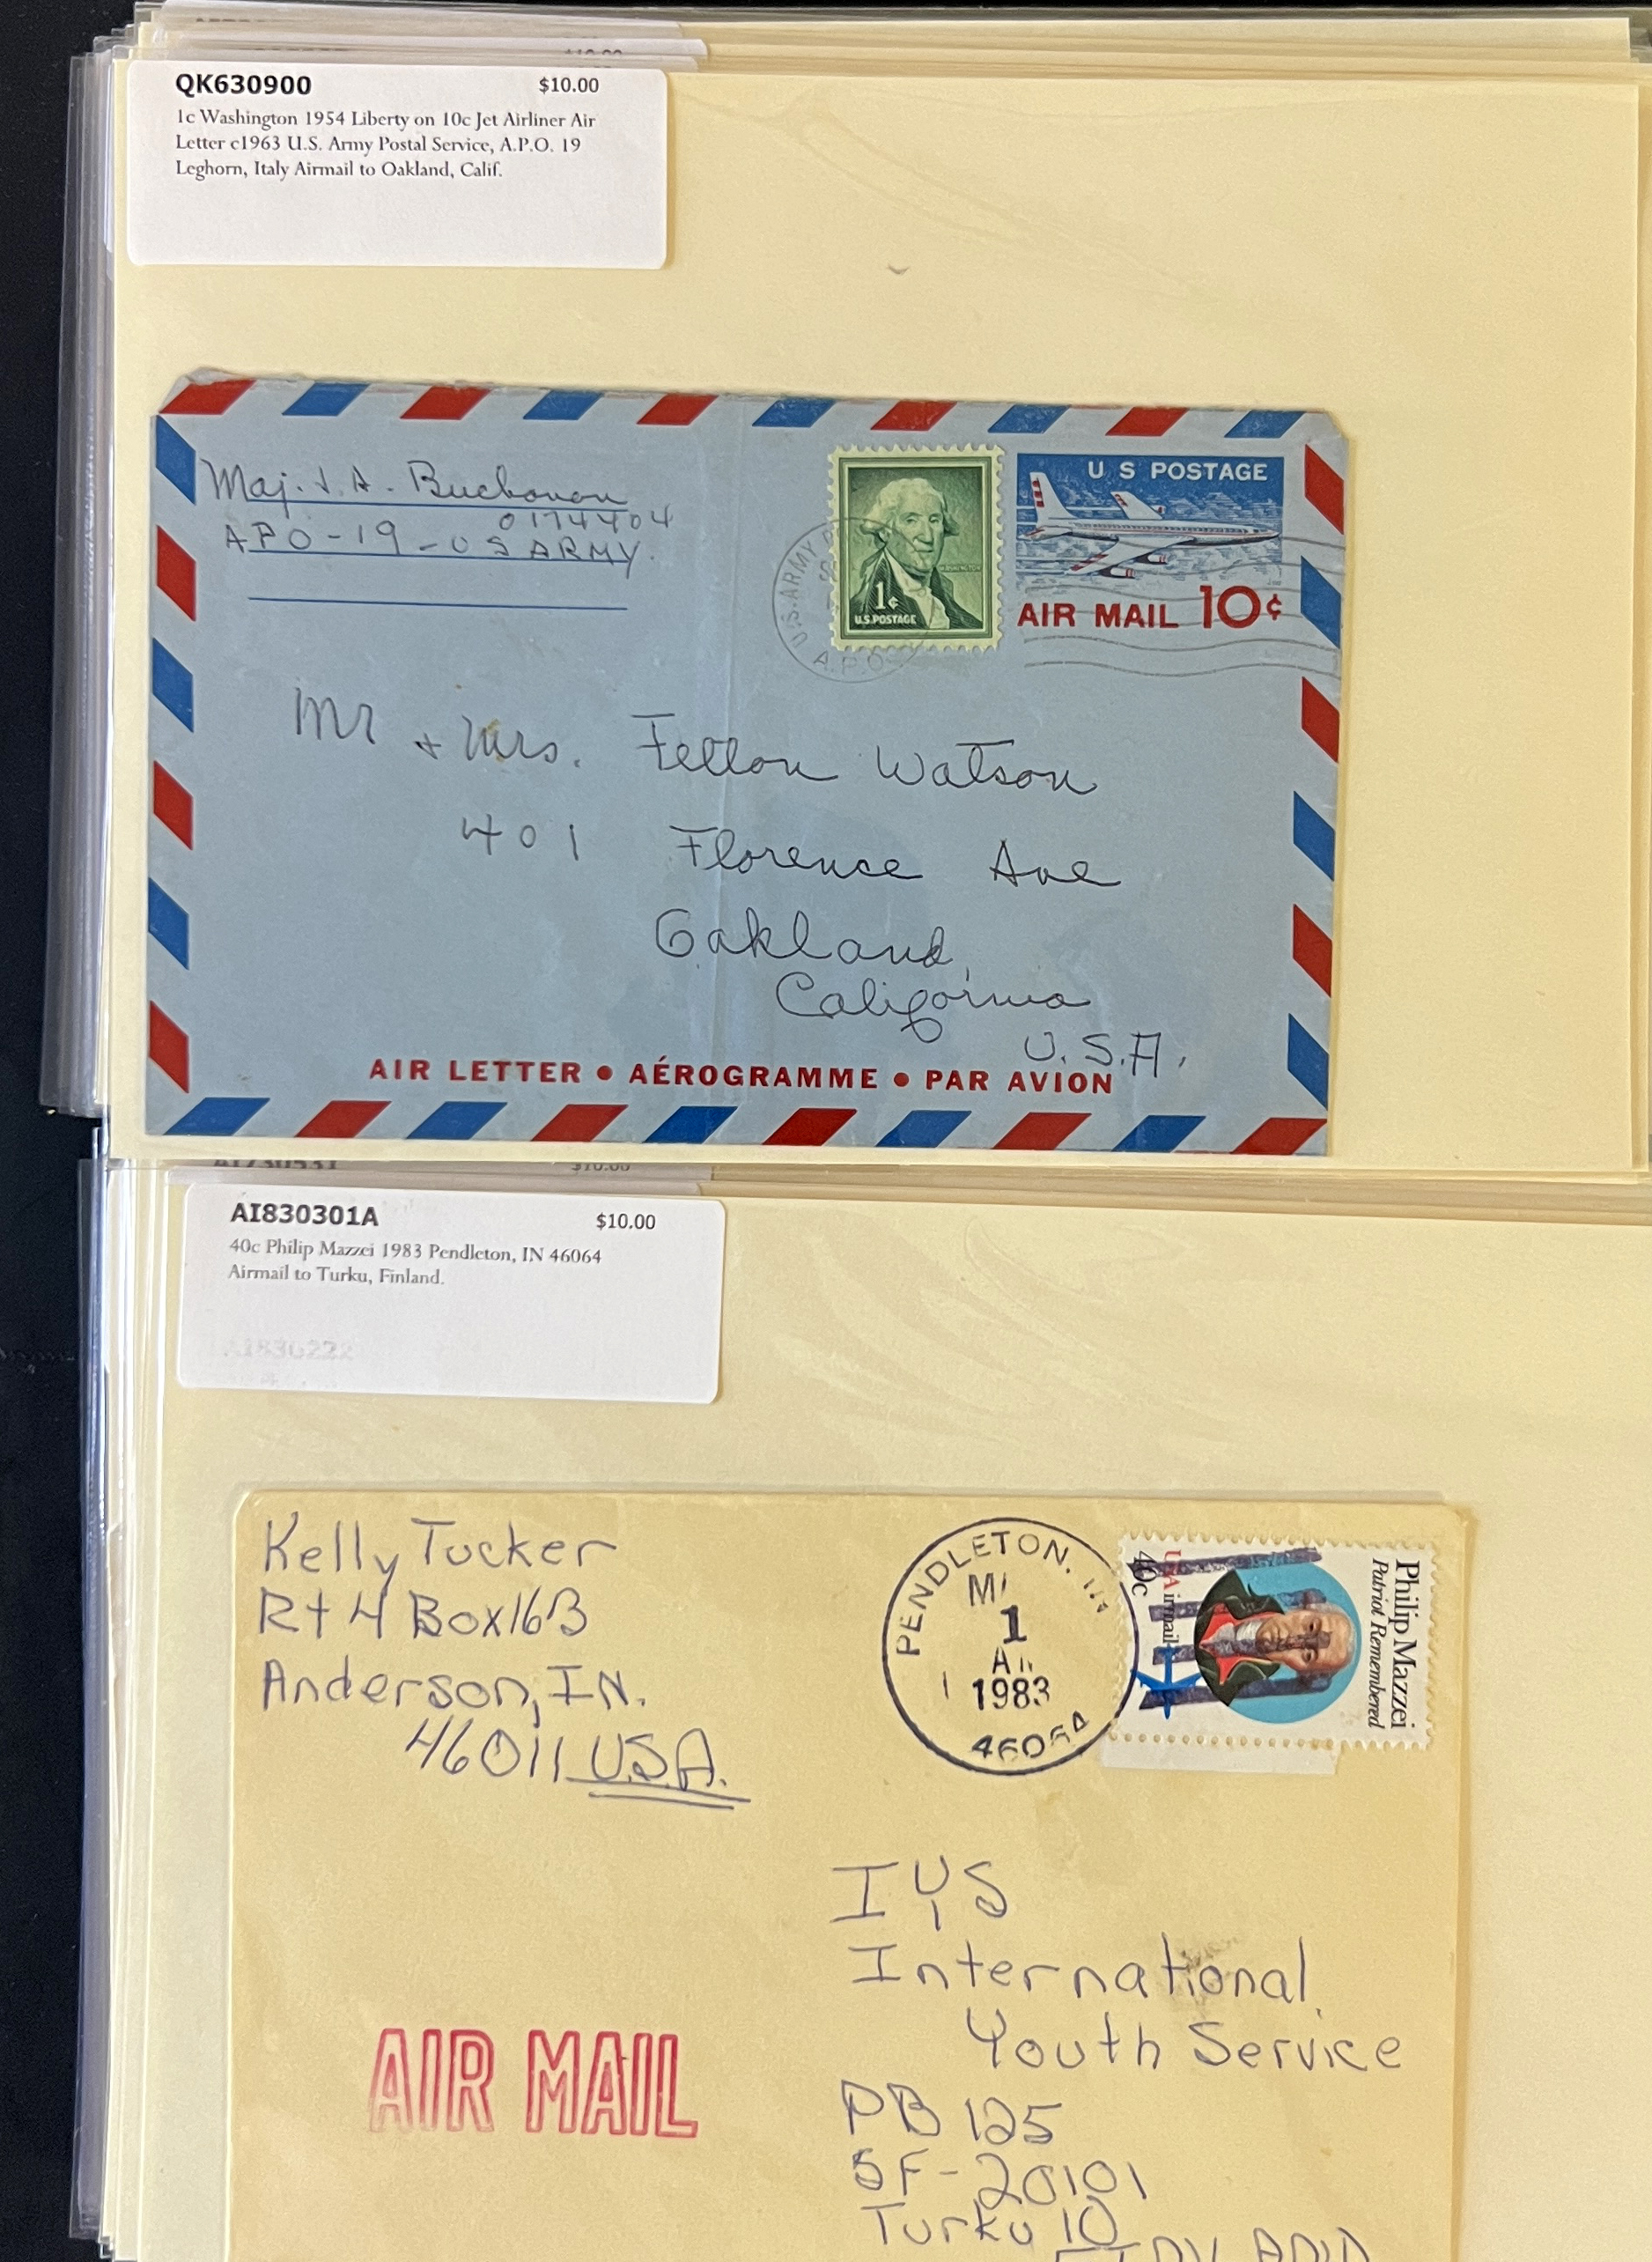 $10.00
QK630900 $10.00
1c Washington 1954 Liberty on 10c Jet Airliner Air
Letter c1963 U.S. Army Postal Service, A.P.O. 19
Leghorn, Italy Airmail to Oakland, Calif.
Maj. J. A. Buchanan
0174404
APO-19-US ARMY.
U.S. ARMY
A.P.O.
WASHINGTON
1¢
U.S. POSTAGE
U S POSTAGE
AIR MAIL 10¢
Mr + Mrs. Felton Watson
401 Florence Ave
Oakland,
California
U.S.A.
AIR LETTER • AÉROGRAMME • PAR AVION
AI730531 $10.00
AI830301A $10.00
40c Philip Mazzei 1983 Pendleton, IN 46064
Airmail to Turku, Finland.
AI830222
Kelly Tucker
Rt 4 Box 16B
Anderson, IN.
46011 U.S.A.
PENDLETON, IN
1
1983
46064
Philip Mazzei
Patriot Remembered
USAirmail
40c
IYS
International
Youth Service
PB 125
SF-20101
Turku 10
FINLAND
AIR MAIL